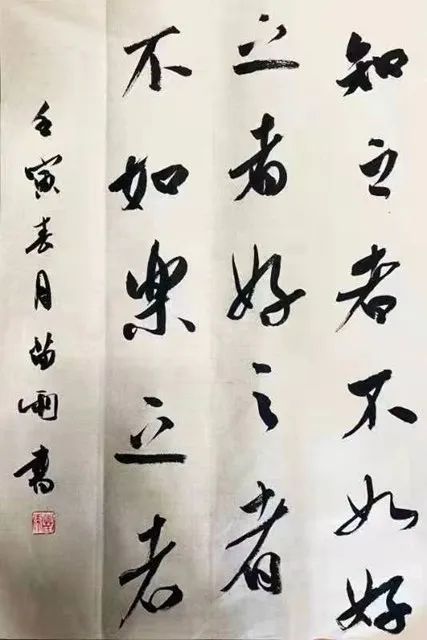 知之者不如好
之者好之者
不如樂之者
壬寅春月書